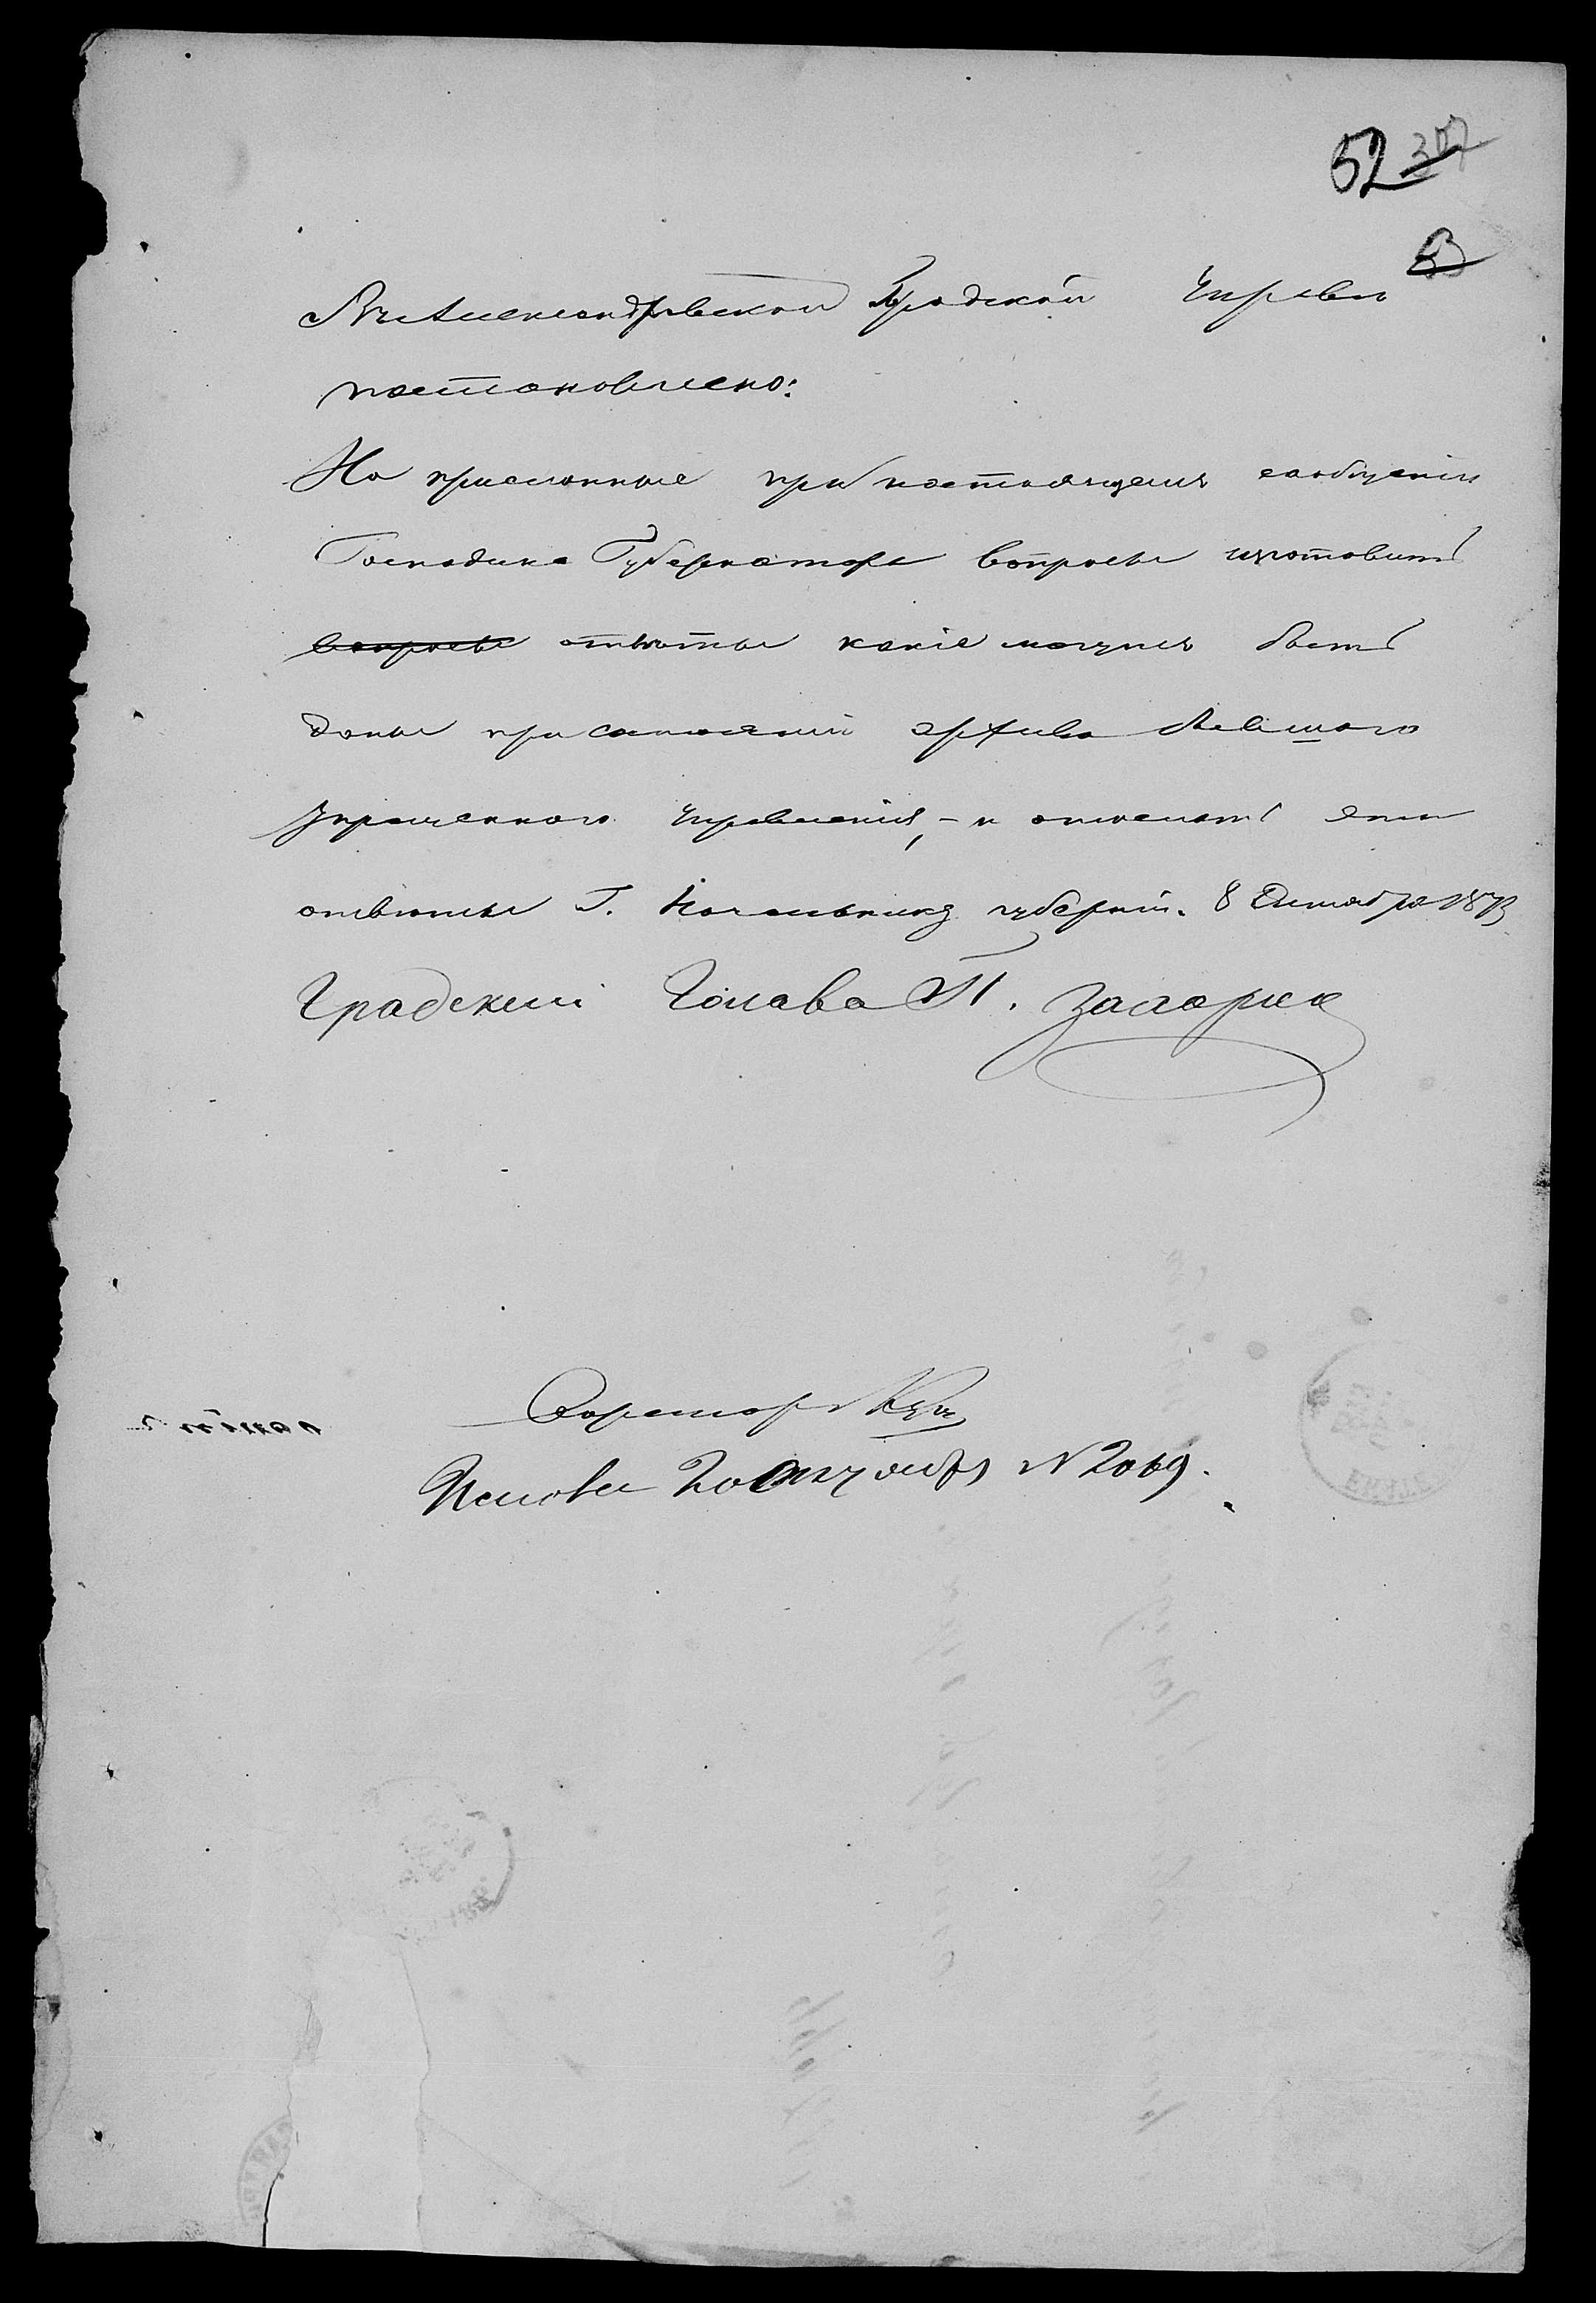 52 ~~307~~
Въ Александровской Городской Управѣ
постановлено:
На присланные при настоящемъ сообщеніи
Господина Губернатора вопросы изготовить
~~вопросы~~ отвѣты какіе могутъ быть
даны при состояніи архива бывшаго
управленія, - и отослать эти
отвѣты Г. Начальнику губерніи. 8 Октября 1873
Градскій Голова П. Захарин
Исполн 20 Октября N 2069.